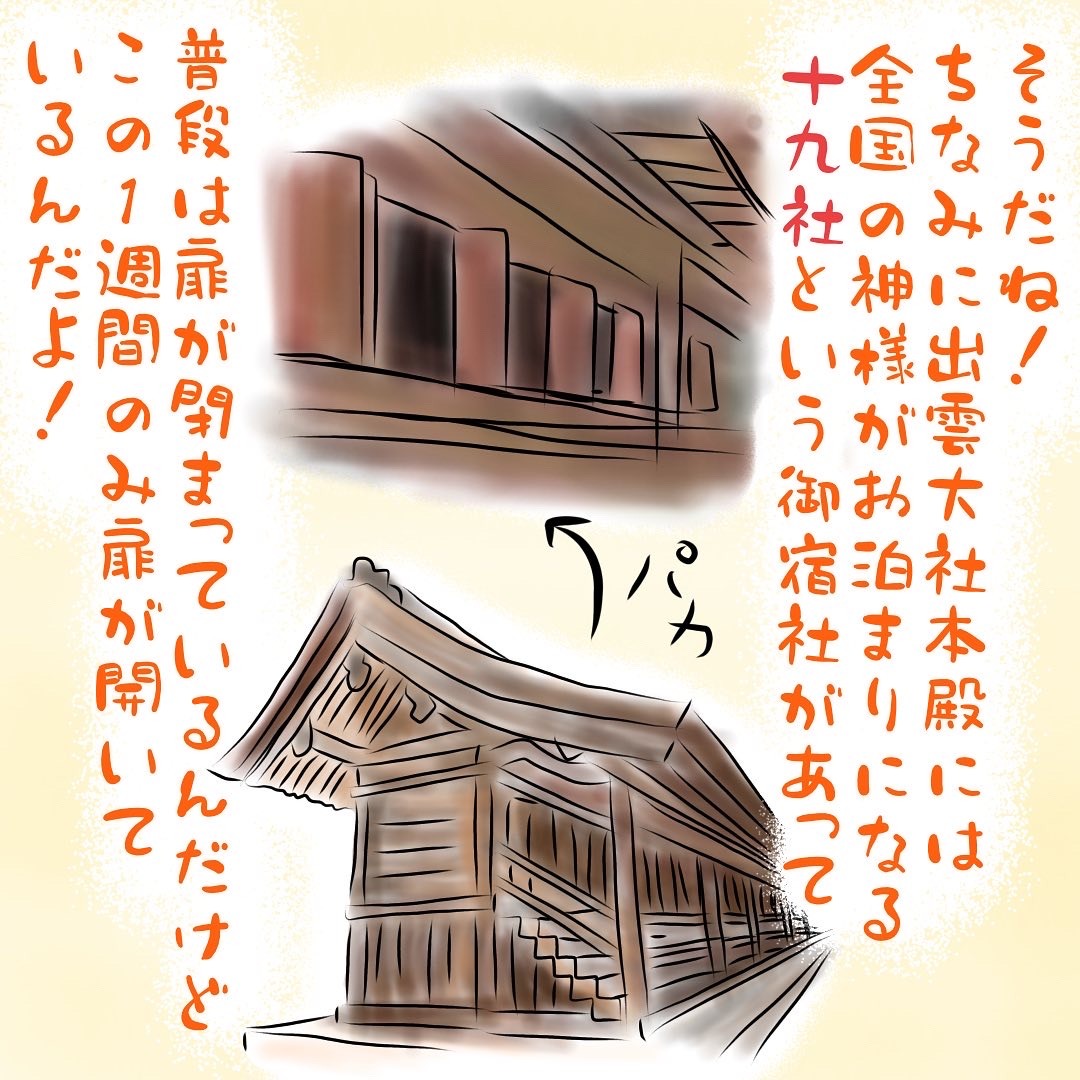 そうだね！
ちなみに出雲大社本殿には
全国の神様がお泊まりになる
十九社という御宿社があって
パカ
普段は扉が閉まっているんだけど
この1週間のみ扉が開いて
いるんだよ！